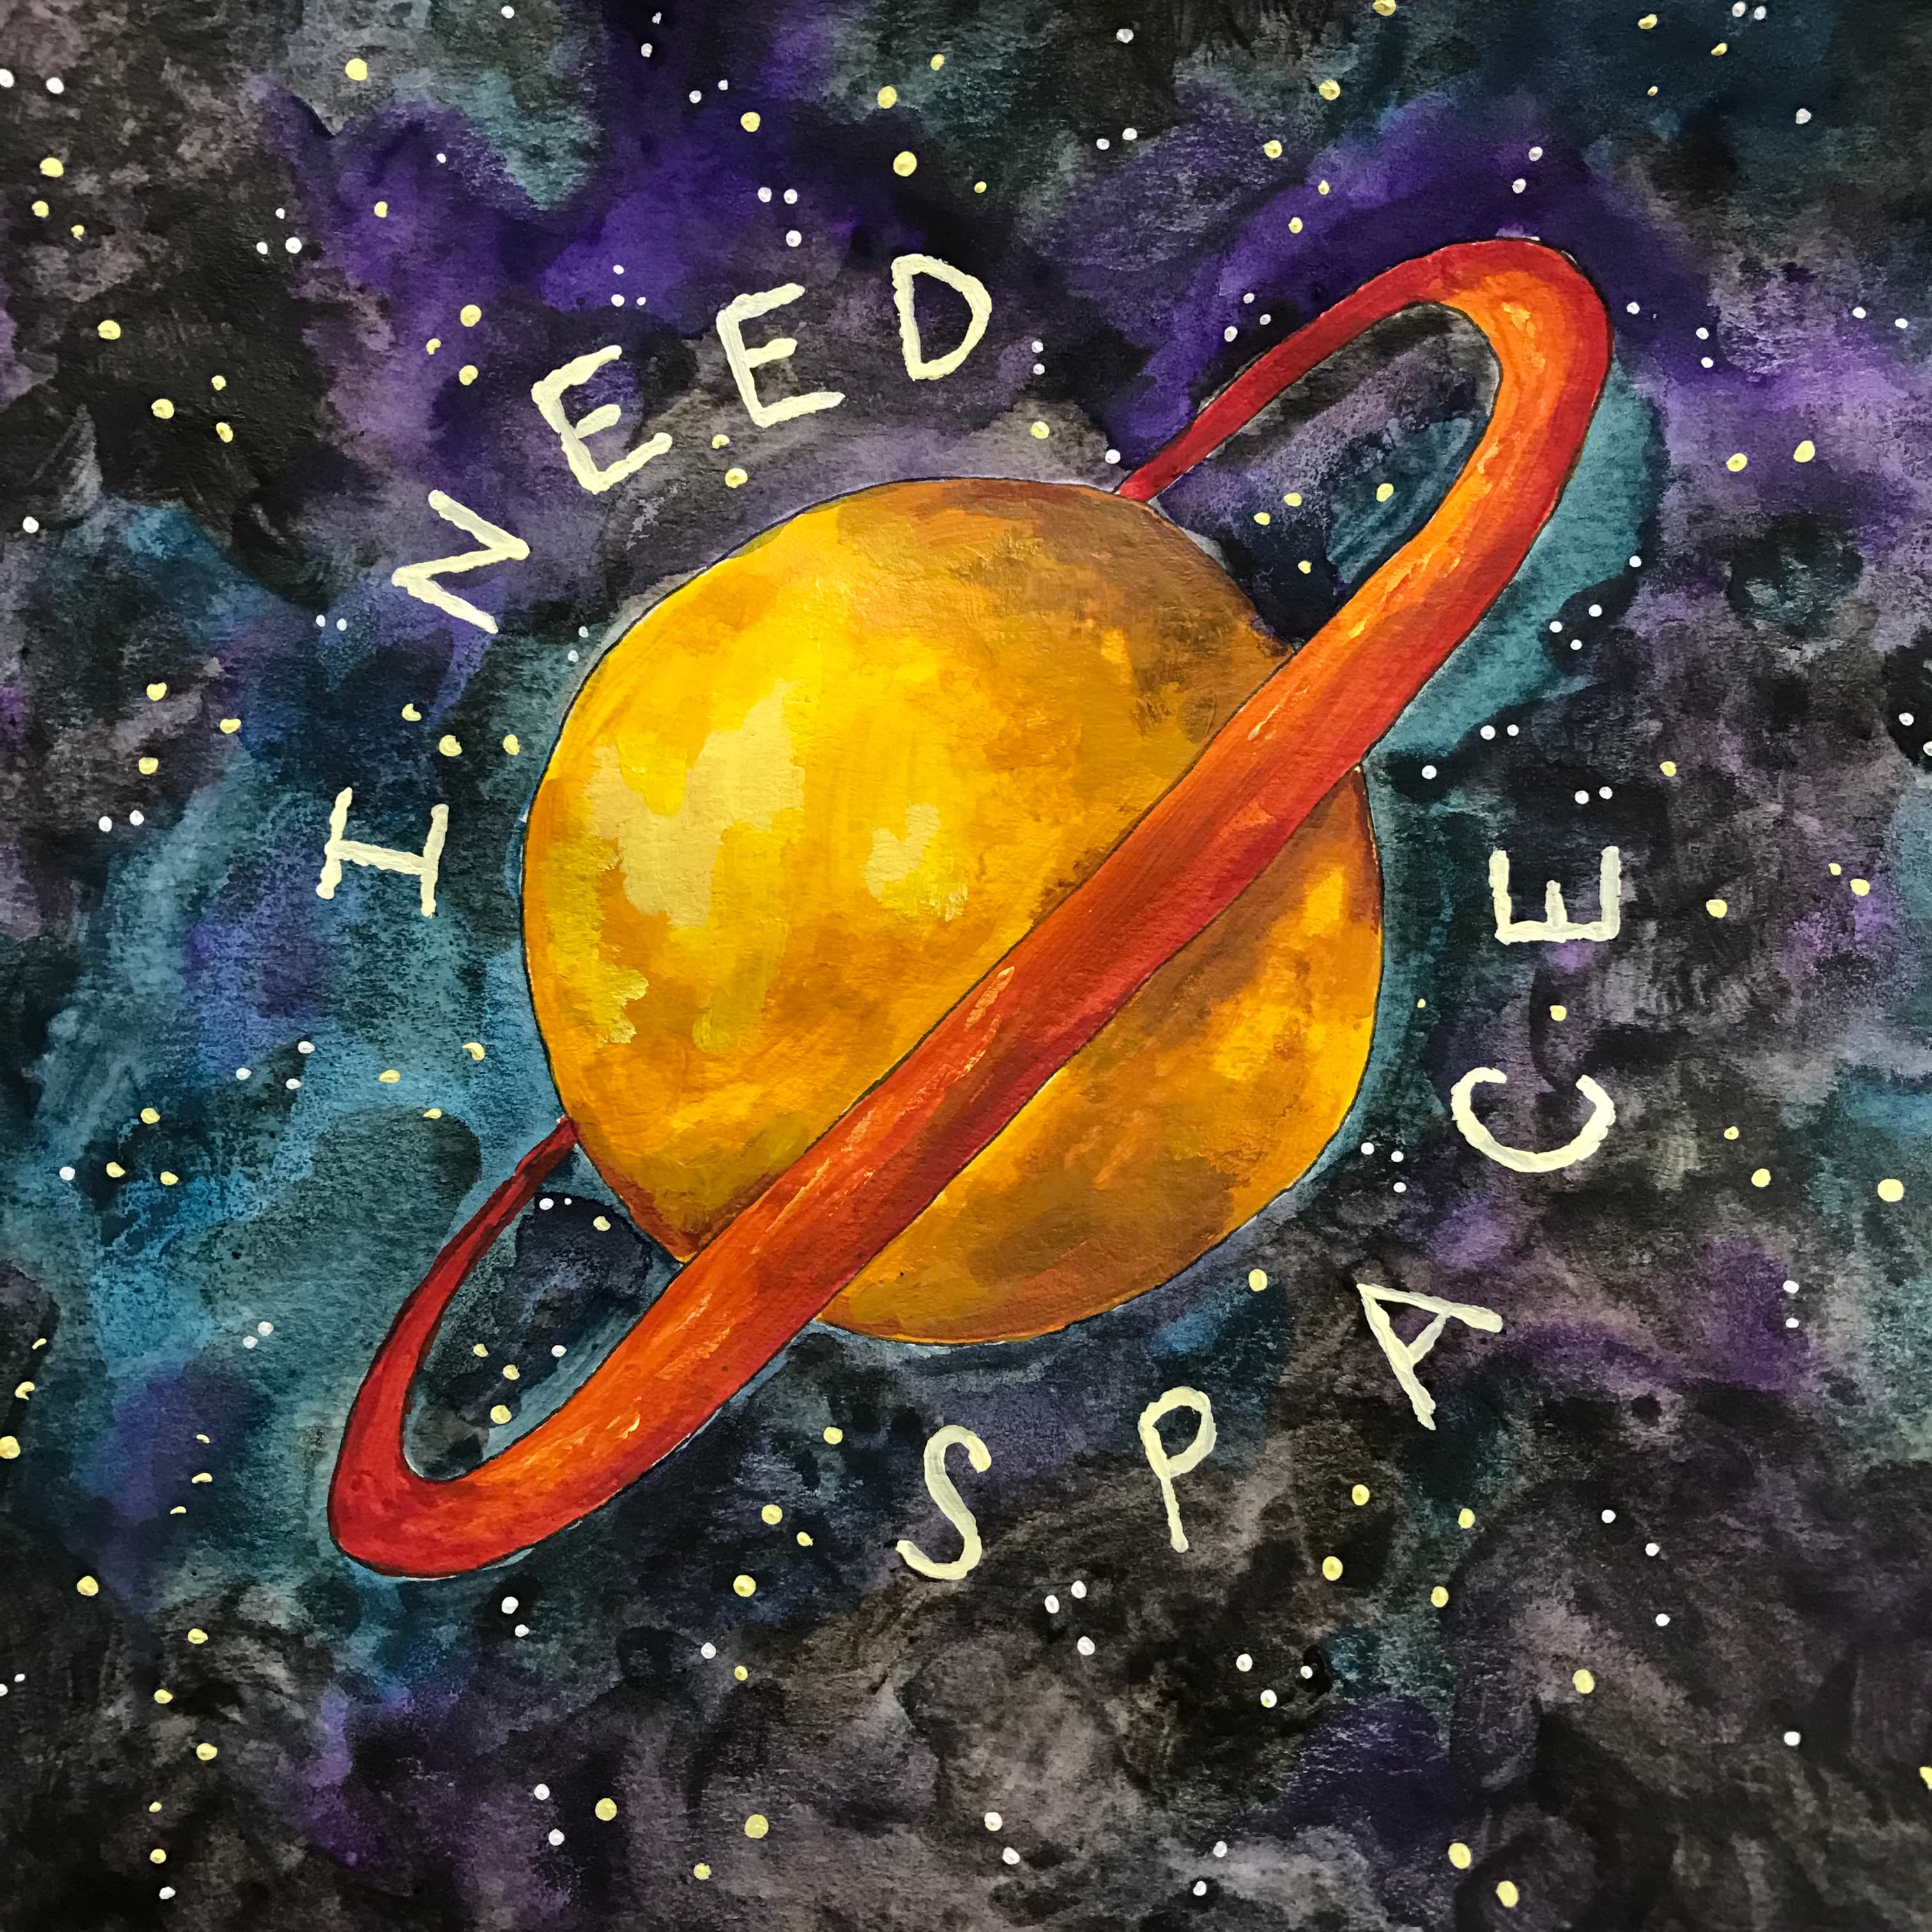 I NEED
SPACE